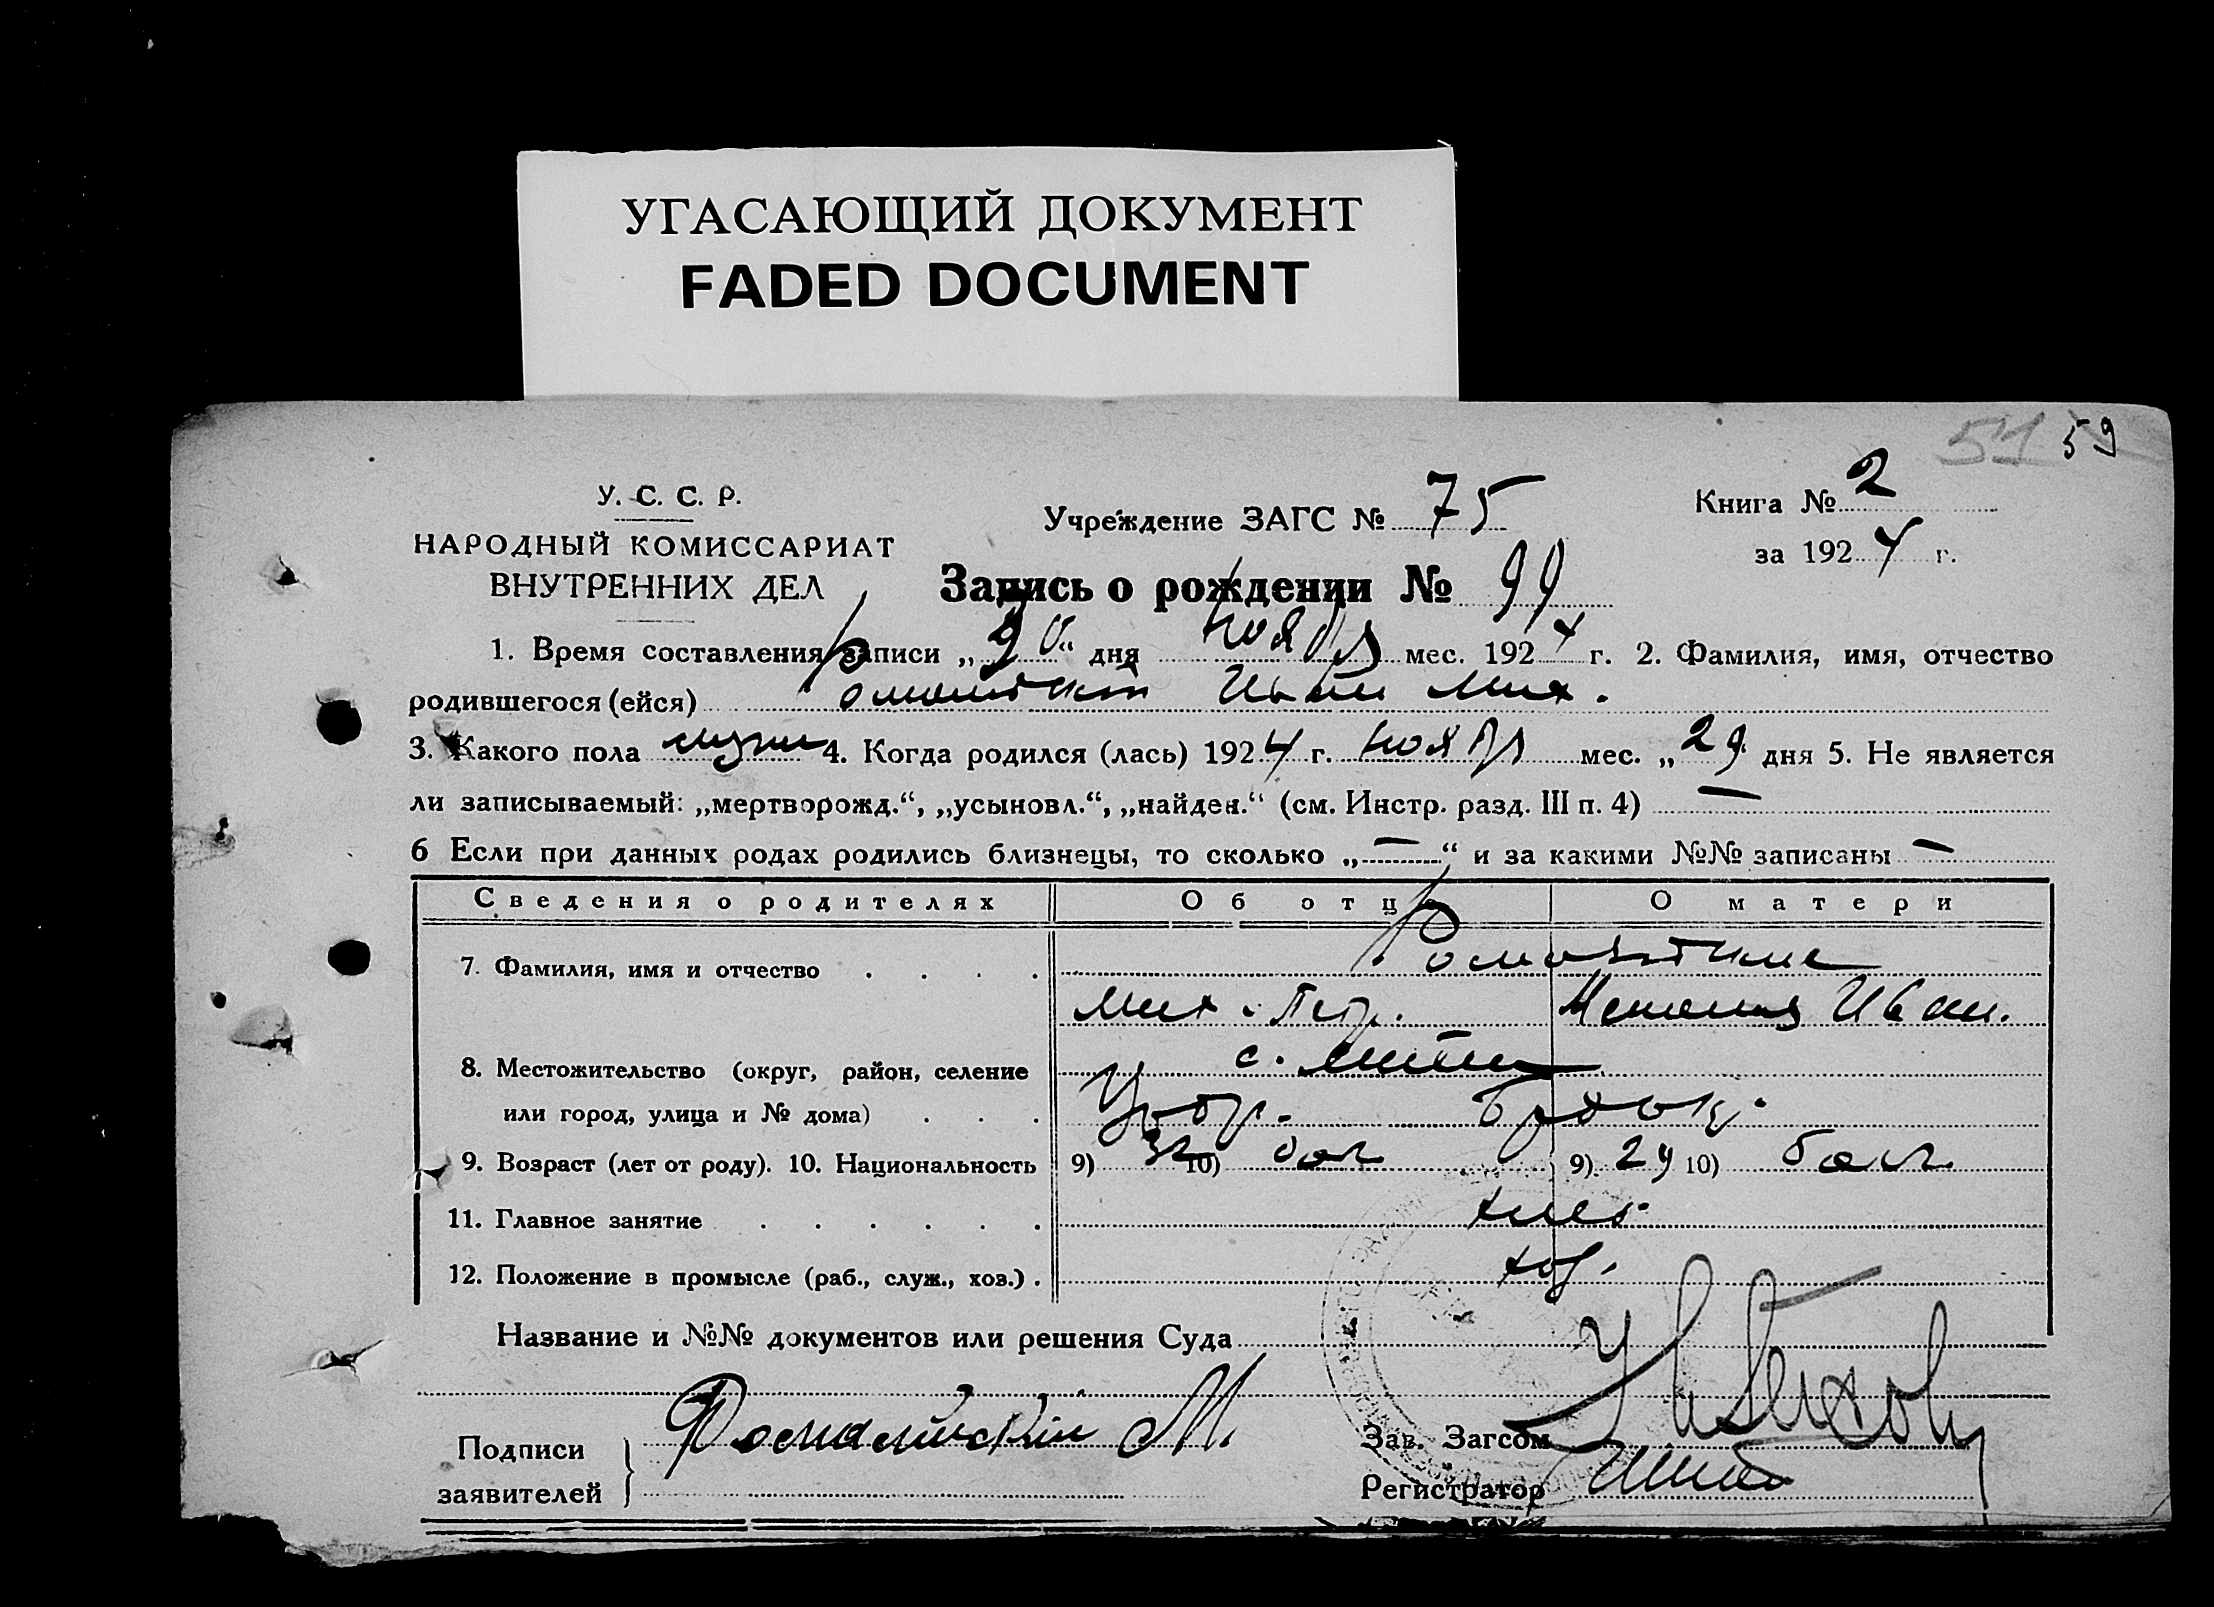 УГАСАЮЩИЙ ДОКУМЕНТ
FADED DOCUMENT
51 59
У. С. С. Р.
НАРОДНЫЙ КОМИССАРИАТ
ВНУТРЕННИХ ДЕЛ
Учреждение ЗАГС № 75
Книга № 2
за 1924 г.
Запись о рождении № 99
1. Время составления записи „30“ дня ноября мес. 1924 г. 2. Фамилия, имя, отчество
родившегося (ейся) Иван Мих.
3. Какого пола муж 4. Когда родился (лась) 1924 г. ноября мес. „29 дня 5. Не является
ли записываемый: „мертворожд.“, „усыновл.“, „найден.“ (см. Инстр. разд. III п. 4) —
6 Если при данных родах родились близнецы, то сколько „—“ и за какими №№ записаны —
Сведения о родителях Об отце О матери
7. Фамилия, имя и отчество
Мих. Петр. Иван.
8. Местожительство (округ, район, селение с.
или город, улица и № дома)
9. Возраст (лет от роду). 10. Национальность 9) 32 10) бол 9) 29 10) бол
11. Главное занятие хлеб.
12. Положение в промысле (раб., служ., хоз.) хоз.
Название и №№ документов или решения Суда
Подписи
заявителей
М.
Зав. Загсом
Регистратор